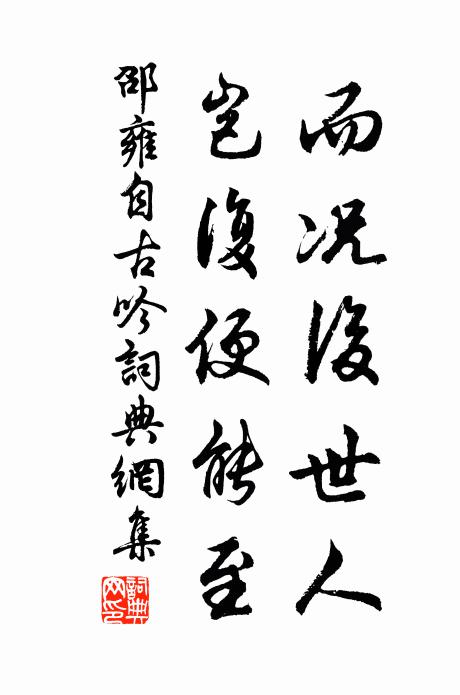 而况後世人
豈復便能至
邵雍自古吟詞典網集
詞典
网印